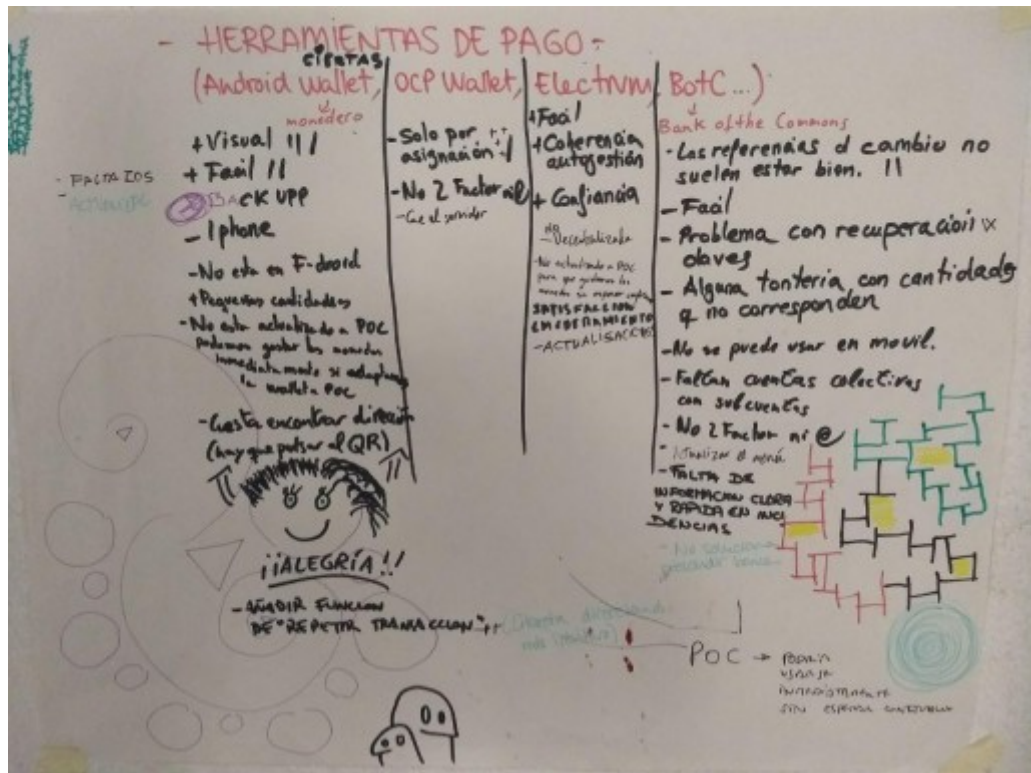 - HERRAMIENTAS DE PAGO -
CIERTAS
(Android Wallet, OCP Wallet, Electrum, BotC...)
monedero
+ Visual |||
+ Facil ||
BACK UPP
- Iphone
- No esta en F-droid
+ Pequeñas cantidades
- No esta actualizado a POC
podemos gastar las monedas
inmediatamente si adaptamos
la wallet a POC
- Cuesta encontrar dirección
(hay que pulsar al QR)
¡¡ALEGRÍA!!
- AÑADIR FUNCION
DE "REPETIR TRANSACCION"
- FALTA IOS
- Solo por
asignación
- No 2 Factor ni @
+ Facil
+ Coherencia
autogestión
+ Confiancia
No
- Decentralizada
- No actualizado a POC
SATISFACCION
EMPODERAMIENTO
Bank of the Commons
- Las referencias d cambiu no
suelen estar bien. ||
- Facil
- Problema con recuperación x
claves
- Alguna tontería con cantidades
q no corresponden
- No se puede usar en movil.
- Faltan cuentas colectivas
con subcuentas
- No 2 Factor ni @
- FALTA DE
INFORMACION CLARA
Y RAPIDA EN INCI
DENCIAS
POC → PODRIA
USARSE
INMEDIATAMENTE
SIN ESPERAR